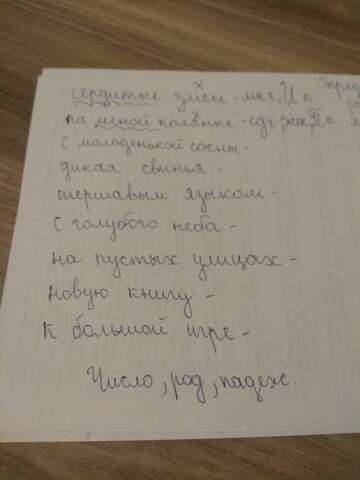 сердитые - мн.ч, И п.
на лесной полянке - ед.ч, ж.р, П п.
с молоденькой сосны -
дикая свинья -
шершавым языком -
с голубого неба -
на пустых улицах -
новую книгу -
к большой игре -
Число, род, падеж.